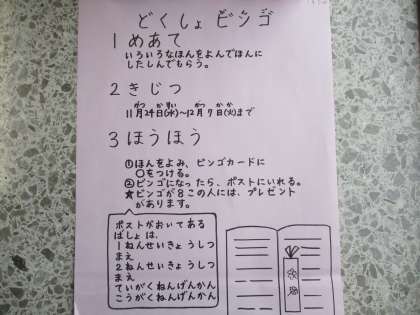 どくしょ ビンゴ
1 めあて
いろいろなほんをよんでほんに
したしんでもらう。
2 きじつ
がつ かすい がつ かか
11月24日(水)〜12月7日(火)まで
3 ほうほう
①ほんをよみ、ビンゴカードに
○をつける。
②ビンゴになったら、ポストにいれる。
★ビンゴが8この人には、プレゼント
があります。
ポストがおいてある
ばしょは、
1ねんせいきょうしつ
まえ
2ねんせいきょうしつ
まえ
ていがくねんげんかん
こうがくねんげんかん